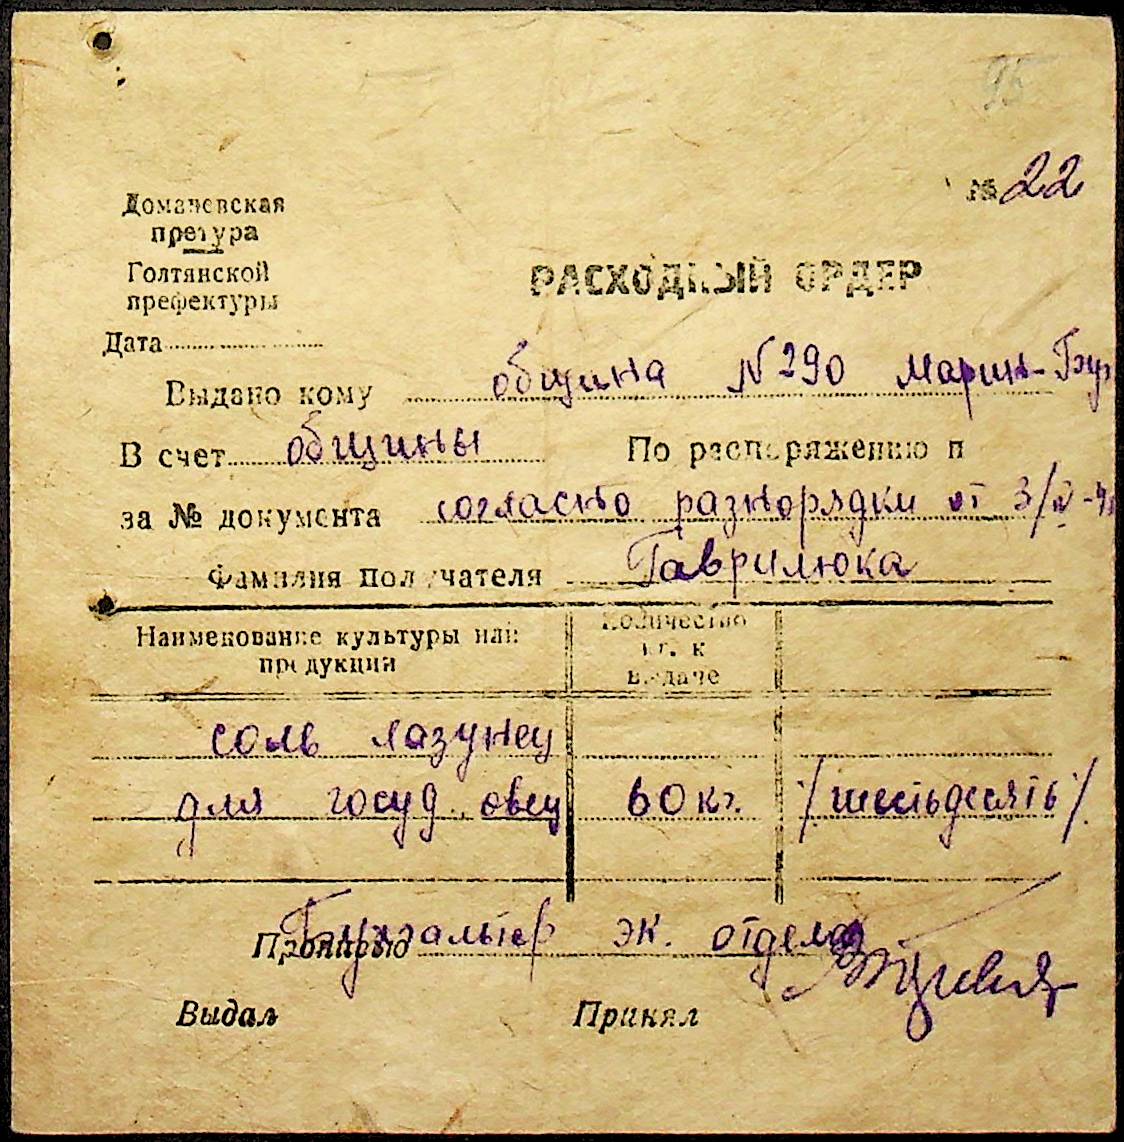 95
№ 22
Доманевская
претура
Голтянской
префектуры
РАСХОДНЫЙ ОРДЕР
Дата
Выдано кому община N 290 Марин-
В счет общины По распоряжению п
за № документа согласно разнорядки от 3/IV
Фамилия получателя Гаврилюка
Наименование культуры или
продукции
Количество
кг. к
выдаче
соль лазунец
для госуд. овец 60 кг. /шестьдесять/
Бухгальтер эк. отдела
Выдал Принял